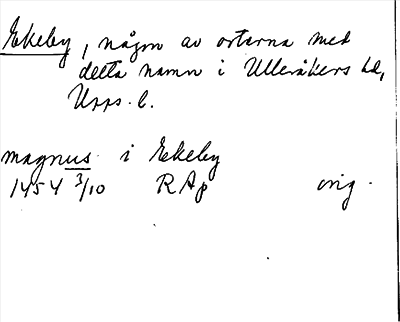 Ekeby, någon av orterna med
detta namn i Ulleråkers hd,
Upps. l.
magnus i Ekeby
1454 3/10 RAp orig.